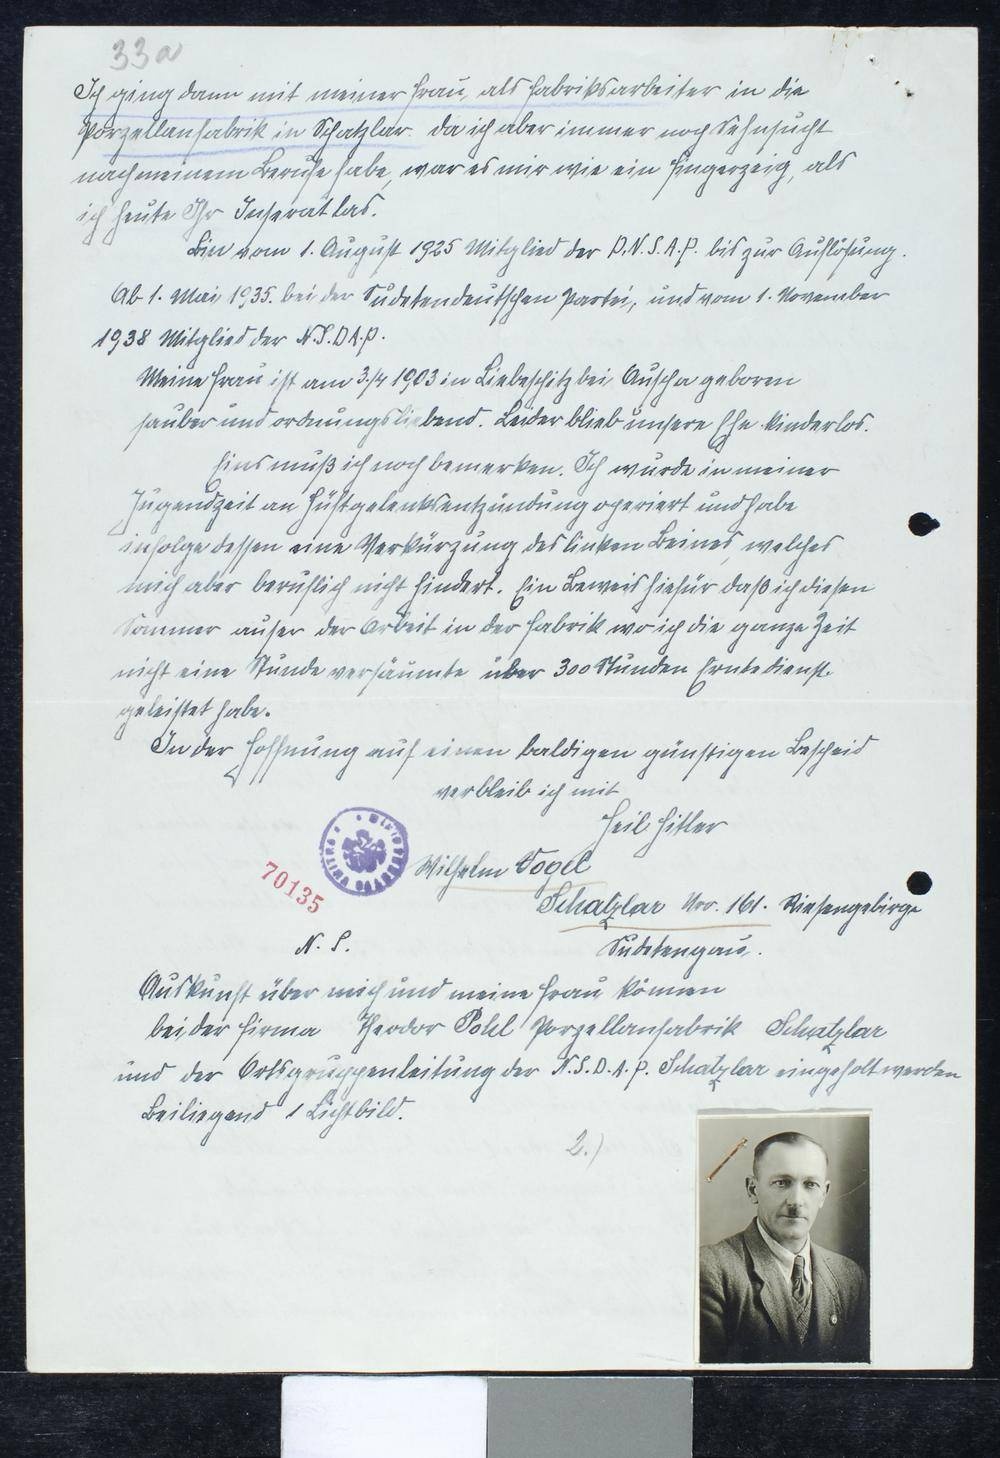 33a
Ich ging dann mit meiner Frau, als Fabriksarbeiter in die
Porzellanfabrik in Schatzlar. Da ich aber immer noch Sehnsucht
nach meinem Berufe habe, war es mir wie ein Fingerzeig, als
ich heute Ihr Inserat las.
Bin vom 1. August 1925 Mitglied der D.N.S.A.P. bis zur Auflösung.
Ab 1. Mai 1935. bei der Sudetendeutschen Partei, und vom 1. November
1938 Mitglied der N.S.D.A.P.
Meine Frau ist am 3./4 1903 in Liebeschitz bei Auscha geboren
sauber und ordnungsliebend. Leider blieb unsere Ehe kinderlos.
Eins muß ich noch bemerken. Ich wurde in meiner
Jugendzeit an Hüftgelenksentzündung operiert und habe
infolge dessen eine Verkürzung des linken Beines, welches
mich aber beruflich nicht hindert. Ein Beweis hiefür daß ich diesen
Sommer auser der Arbeit in der Fabrik wo ich die ganze Zeit
nicht eine Stunde versäumte über 300 Stunden Erntedienst
geleistet habe.
In der Hoffnung auf einen baldigen günstigen Bescheid
verbleib ich mit
Heil Hitler
Wilhelm Vogel
70135
Schatzlar Nro. 161. Riesengebirge
N. S.
Sudetengau.
Auskunft über mich und meine Frau können
bei der Firma Theodor Pohl Porzellanfabrik Schatzlar
und der Ortsgruppenleitung der N.S.D.A.P. Schatzlar eingeholt werden
Beiliegend 1 Lichtbild.
2.)